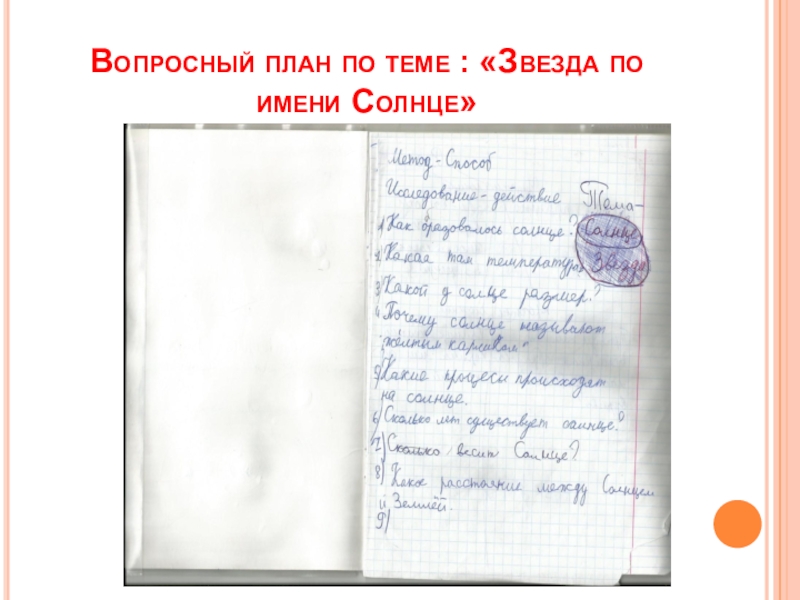 Вопросный план по теме : «Звезда по
имени Солнце»
Метод - Способ
Исследование - действие Тема -
1 Как образовалось солнце? Солнце
2 Какая там температура Звезда
3 Какой у солце размер?
4 Почему солнце называют
"жёлтым карликом"
5 Какие процесы происходят
на солнце.
6) Сколько лет существует солнце?
7) Сколько весит Солнце?
8) Какое расстояние между Солнцем
и Землёй.
9)